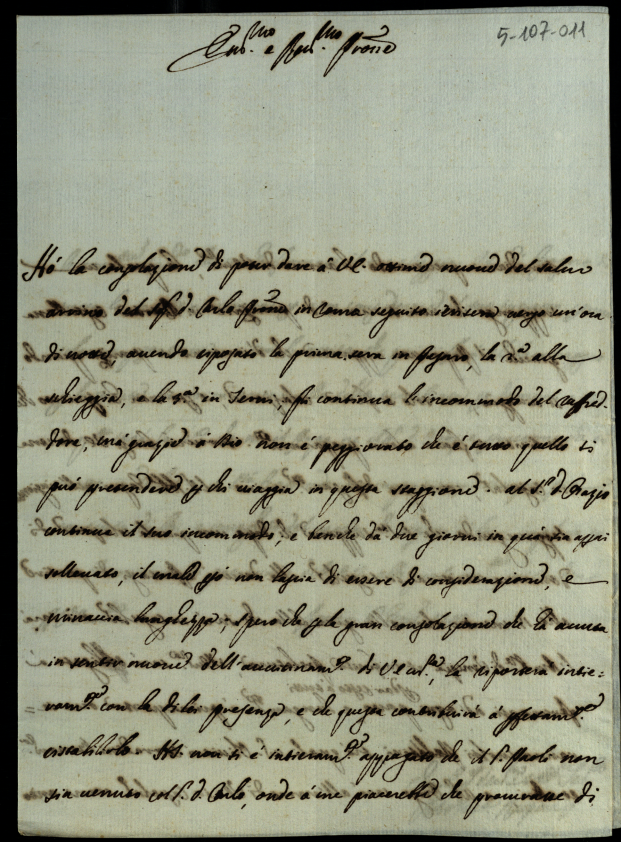 5-107-011
Ecc.mo e Rev.mo Prone
Hó la consolazione di poter dare á V.E. ottime nuove del salvo
arrivo del Sig.r D. Carlo Prone in Roma seguito iersera verso un'ora
di notte, avendo riposato la prima sera in Pesaro, la 2.a alla
scheggia, e la 3.a in Terni, fu continua l'incommodo del raffred-
dore, má grazie á Dio non é peggiorato che é tutto quello si
può pretendere p chi viaggia in questa staggione. al S.r D. Orazio
continua il suo incommodo, e benche dà due giorni in quà sia assai
sollevato, il male però non lascia di essere di considerazione, e
minaccia lunghezza; spero che p la gran consolazione che há avuta
in sentir nuove dell'avvicinam.to di V. Ecc.za, la riporterà intie=
ram.te con la di lei presenza, e che questa contribuirà á perfettam.te
ristabilirlo. non si é intieram.te appagato che il S. Paoli non
sia venuto col S. D. Carlo, onde á me piacerebbe che procurasse di